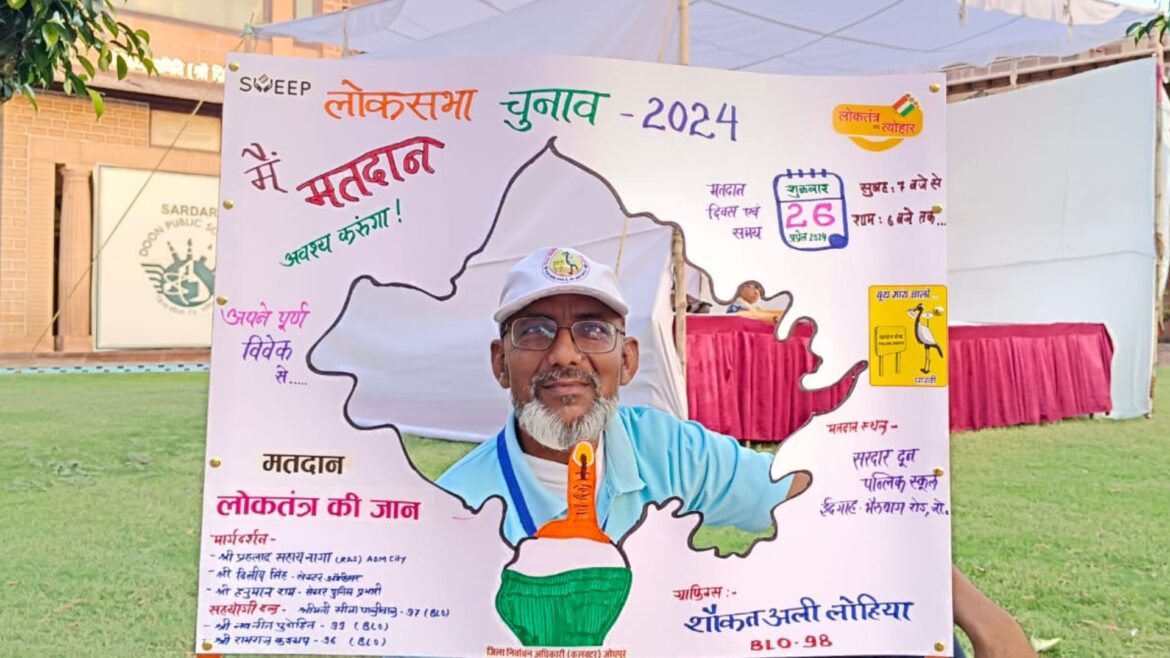 SWEEP
लोकसभा चुनाव - 2024
लोकतंत्र का त्योहार
मैं मतदान
अवश्य करुंगा!
मतदान
दिवस एवं
समय
शुक्रवार
26
अप्रेल 2024
सुबह: 7 बजे से
शाम: 6 बजे तक...
SARDAR
DOON PUBLIC
अपने पूर्ण
विवेक
से.....
मतदान
लोकतंत्र की जान
मार्गदर्शन -
- श्री प्रहलाद सहाय नागा (RAS) ADM CITY
- श्री दिलीप सिंह - सेक्टर ऑफिसर
- श्री हनुमान राम - सेक्टर पुलिस प्रभारी
सहयोगी दल - श्रीमती सीमा - 97 (BLO)
- श्री नवनीत पुरोहित - 99 (BLO)
- श्री - 96 (BLO)
बूथ माथे चालो
पारवी
मतदान स्थल -
सरदार दून
पब्लिक स्कूल
ईदगाह - भैरुबाग रोड, जो.
ग्राफिक्स :-
शौकत अली लोहिया
BLO-98
जिला निर्वाचन अधिकारी (कलक्टर) जोधपुर